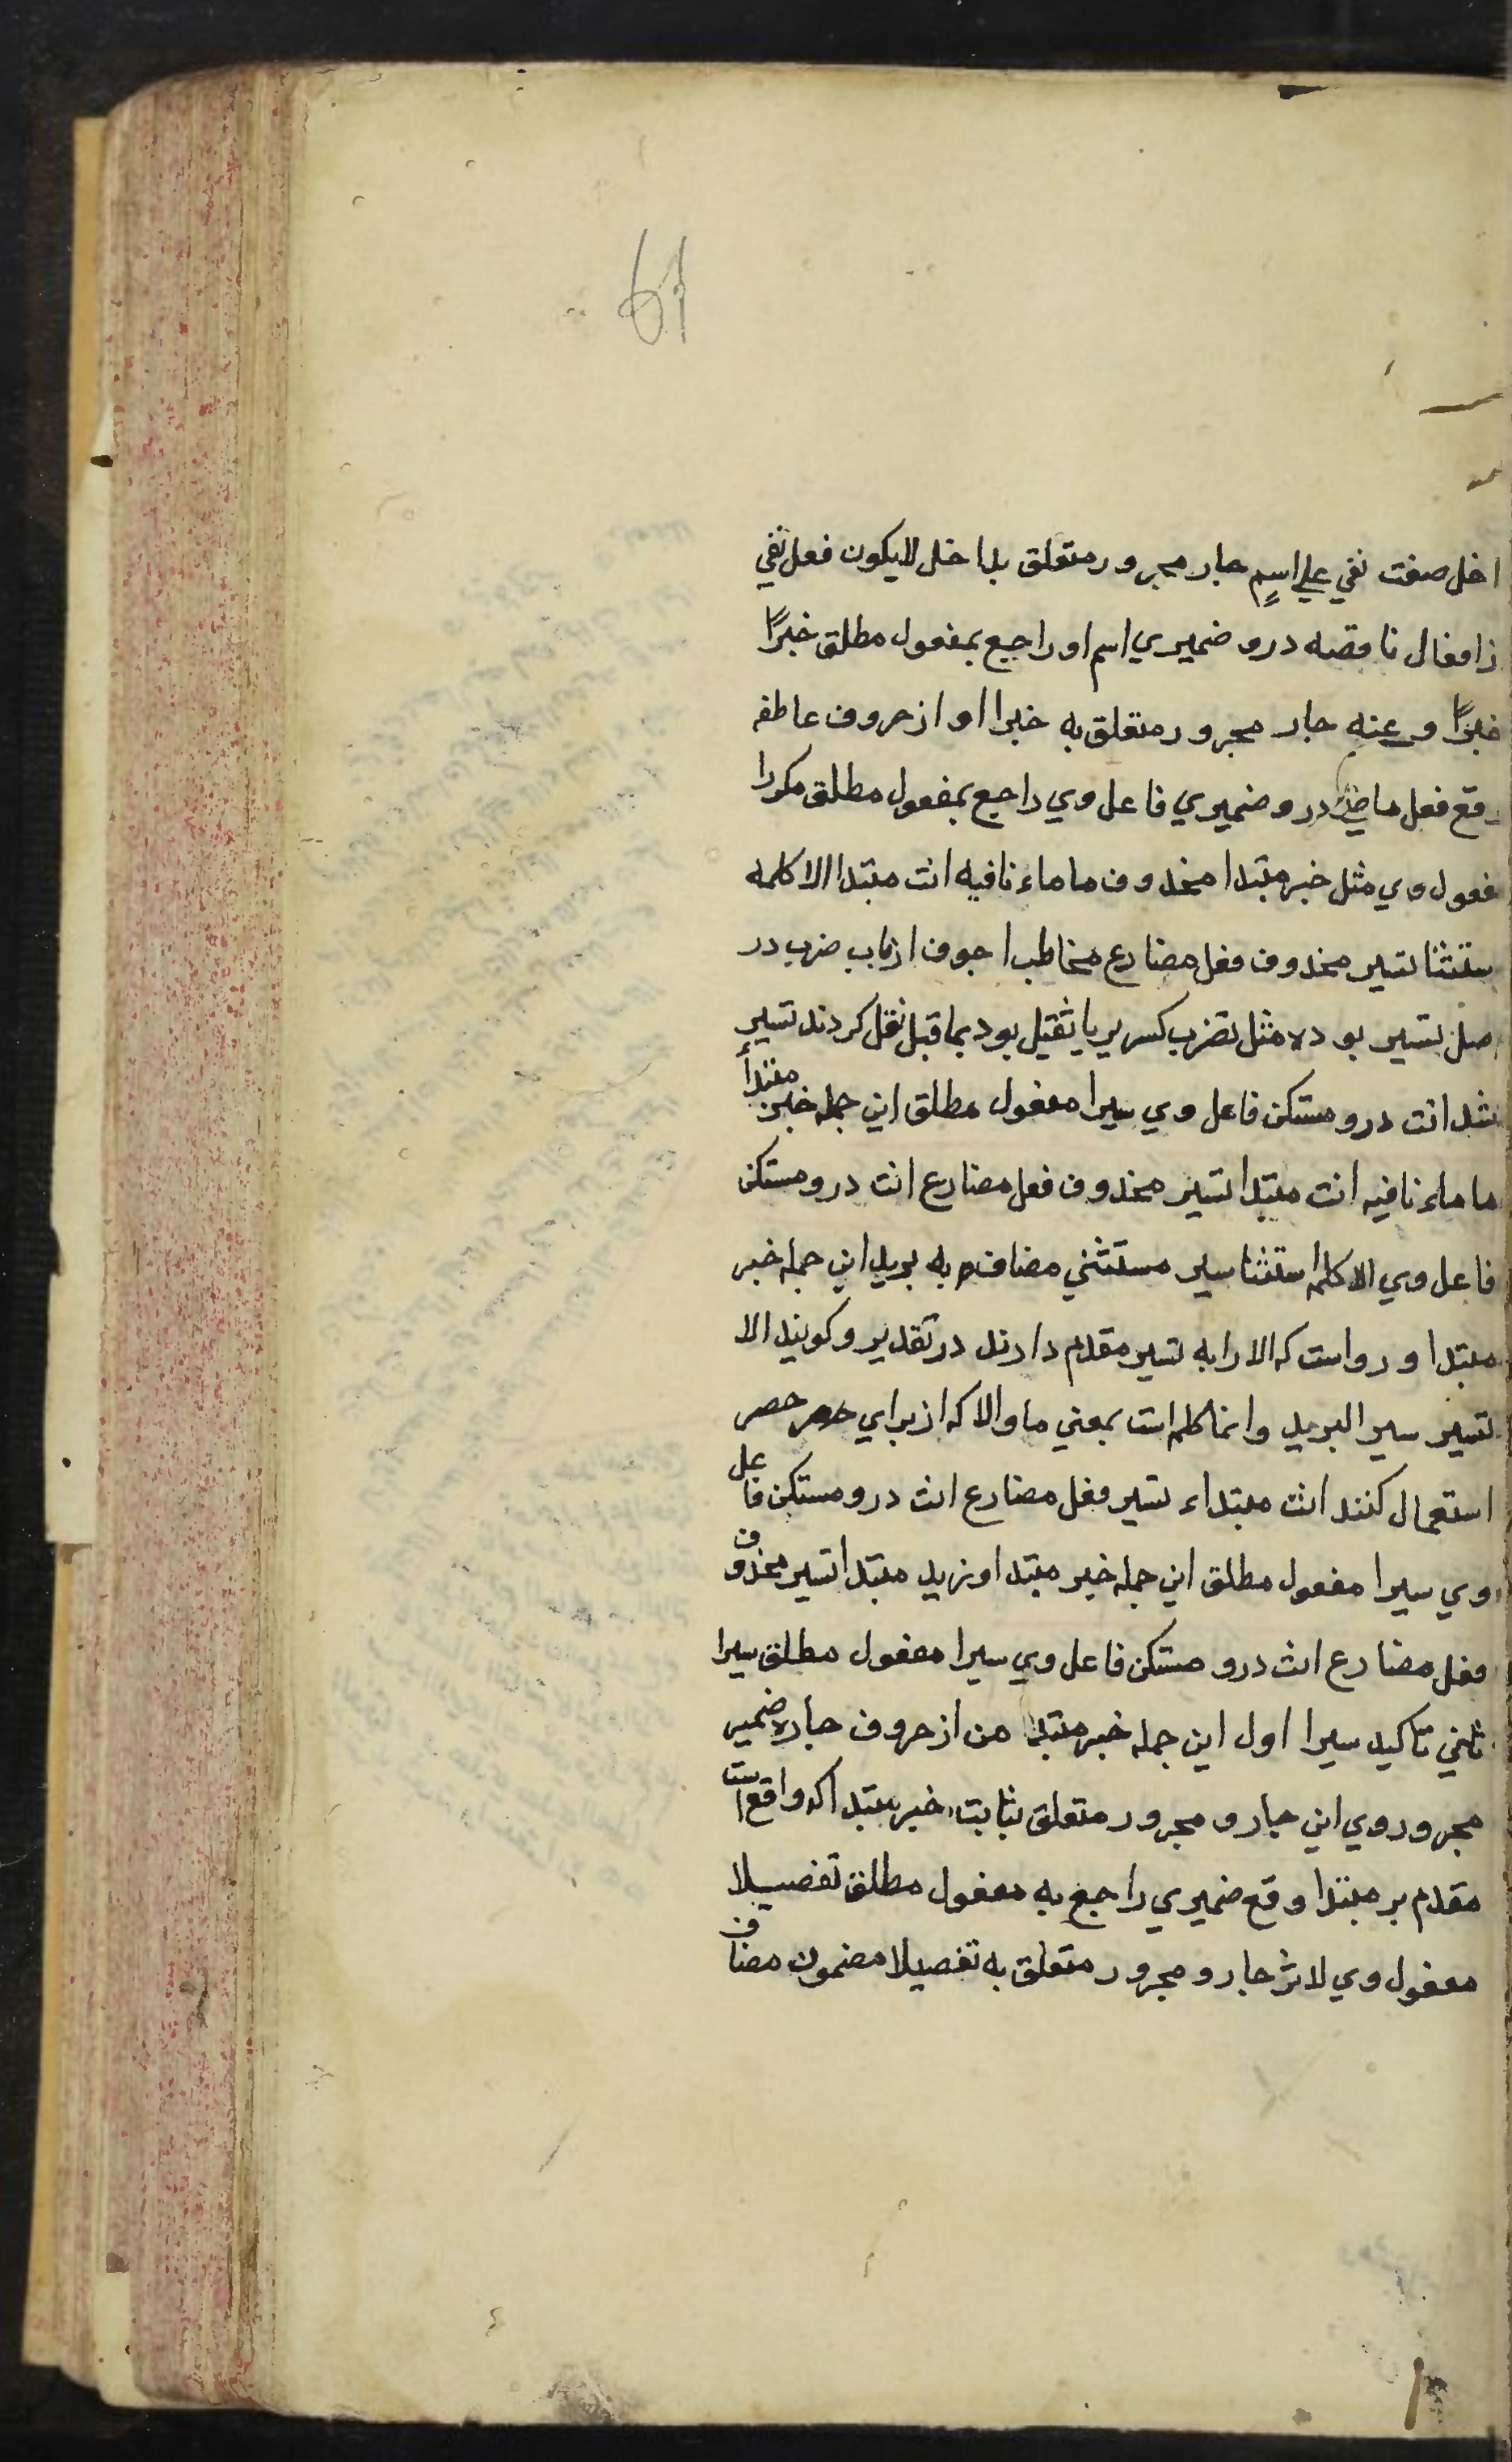 61
اخل صفت نفي علي اسمٍ جار مجرور متعلق بداخل لايكون فعل نفي
زافعال ناقصه درو ضميري اسم او راجع بمفعول مطلق خبراً
خبراً وعنه جار مجرور متعلق به خبرا او از حروف عاطفه
وقع فعل ماضي درو ضميري فاعل وي راجع بمفعول مطلق مكررا
مفعول وي مثل خبر مبتدا محذوف ما ماء نافيه انت مبتدا الا كلمه
ستثنا تسير محذوف فعل مضارع مخاطب اجوف ازباب ضرب در
اصل تسير بوده مثل تضرب كسر بر يا ثقيل بود بماقبل نقل كردند تسير
شد انت درو مستكن فاعل وي سيرا مفعول مطلق اين جمله خبر مبتدأ
ما ماء نافيه انت مبتدا تسير محذوف فعل مضارع انت درو مستكن
فاعل وي الا كلمه استثنا سير مستثني مضاف به بريد اين جمله خبر
مبتدا ورواست كه الا را به تسير مقدم دارند در تقدير وكويند الا
تسير سير البريد وانما كلمه است بمعني ما والا كه از براي حصر حصر
استعمال كنند انت مبتداء تسير فعل مضارع انت درو مستكن فاعل
وي سيرا مفعول مطلق اين جمله خبر مبتدا وزيد مبتدا تسير محذوف
فعل مضارع انت درو مستكن فاعل وي سيرا مفعول مطلق سيرا
ثاني تاكيد سيرا اول اين جمله خبر مبتدا من از حروف جاره ضمير
مجرور وي اين جار و مجرور متعلق بثابت خبر مبتدا كه واقع است
مقدم بر مبتدا وقع ضميري راجع به مفعول مطلق تفصيلا
مفعول وي لاثر جار و مجرور متعلق به تفصيلا مضمون مضاف